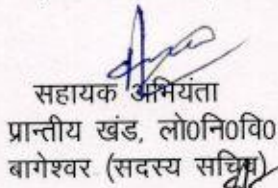 सहायक अभियंता
प्रान्तीय खंड, लो0नि0वि0
बागेश्वर (सदस्य सचिव)